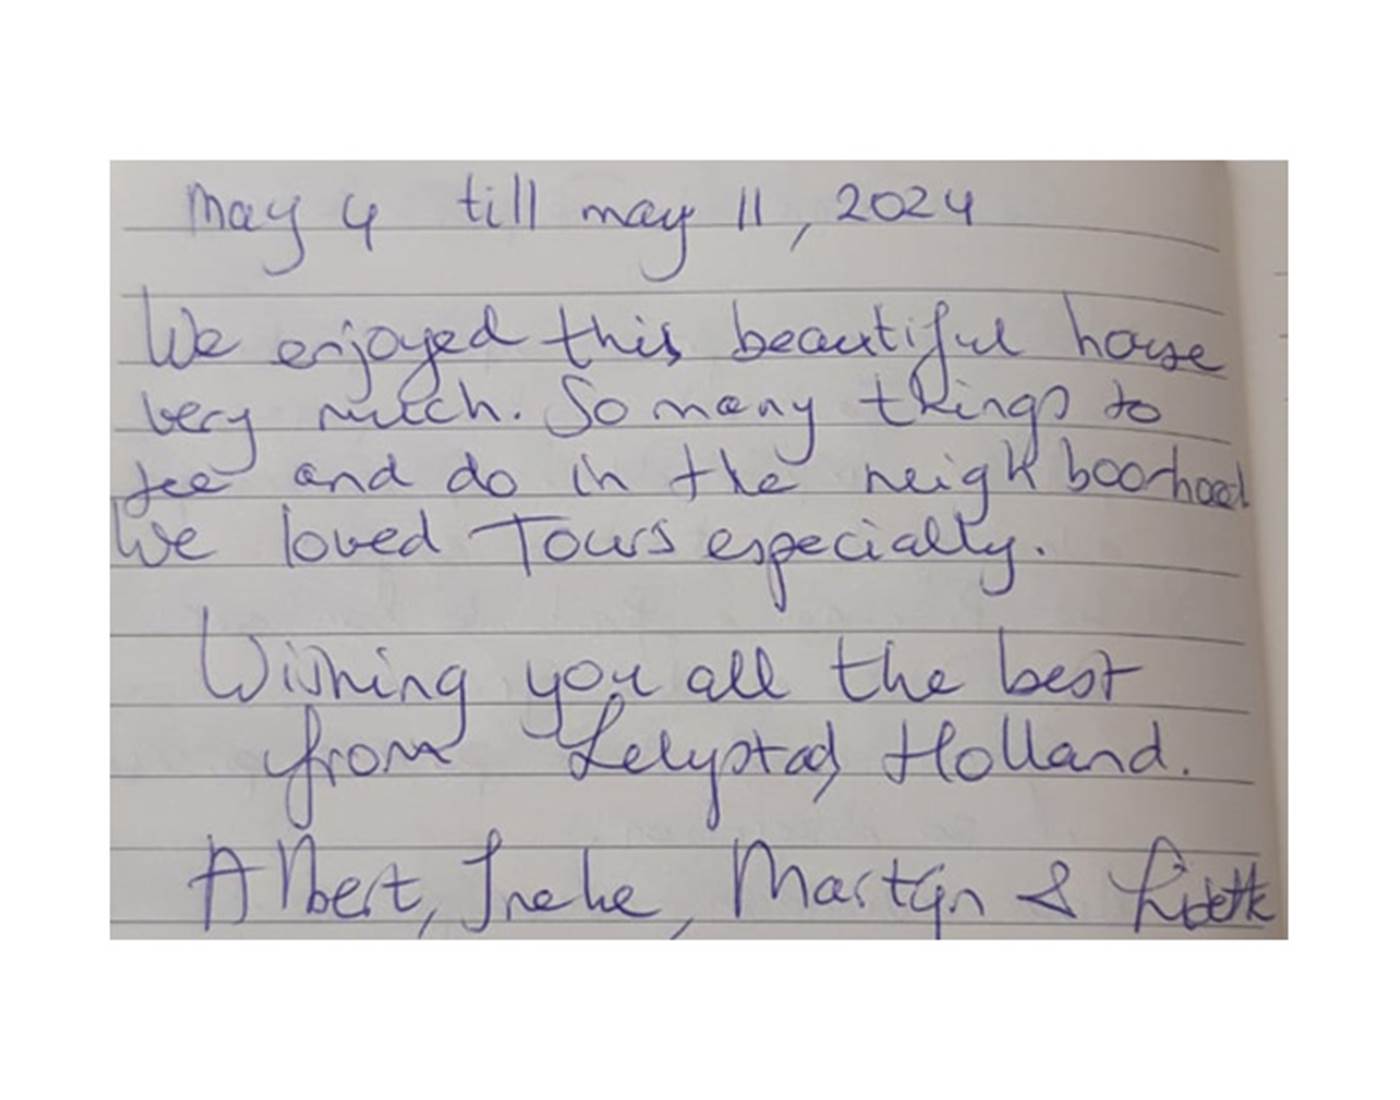 may 4 till may 11, 2024
We enjoyed this beautiful house
very much. So many things to
see and do in the neighboorhood
We loved Tours especially.
Wishing you all the best
from Lelystad, Holland.
Albert, Ineke, Martijn &